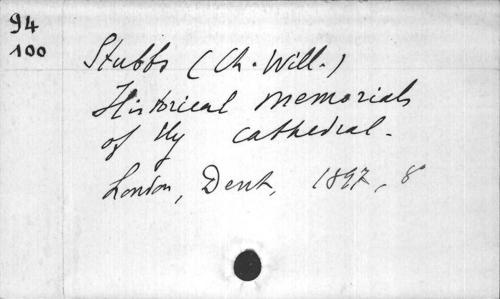 94
100
Stubbs (Ch. Will.)
Historical memorials
of Ely cathedral.
London, Dent, 1897, 8°